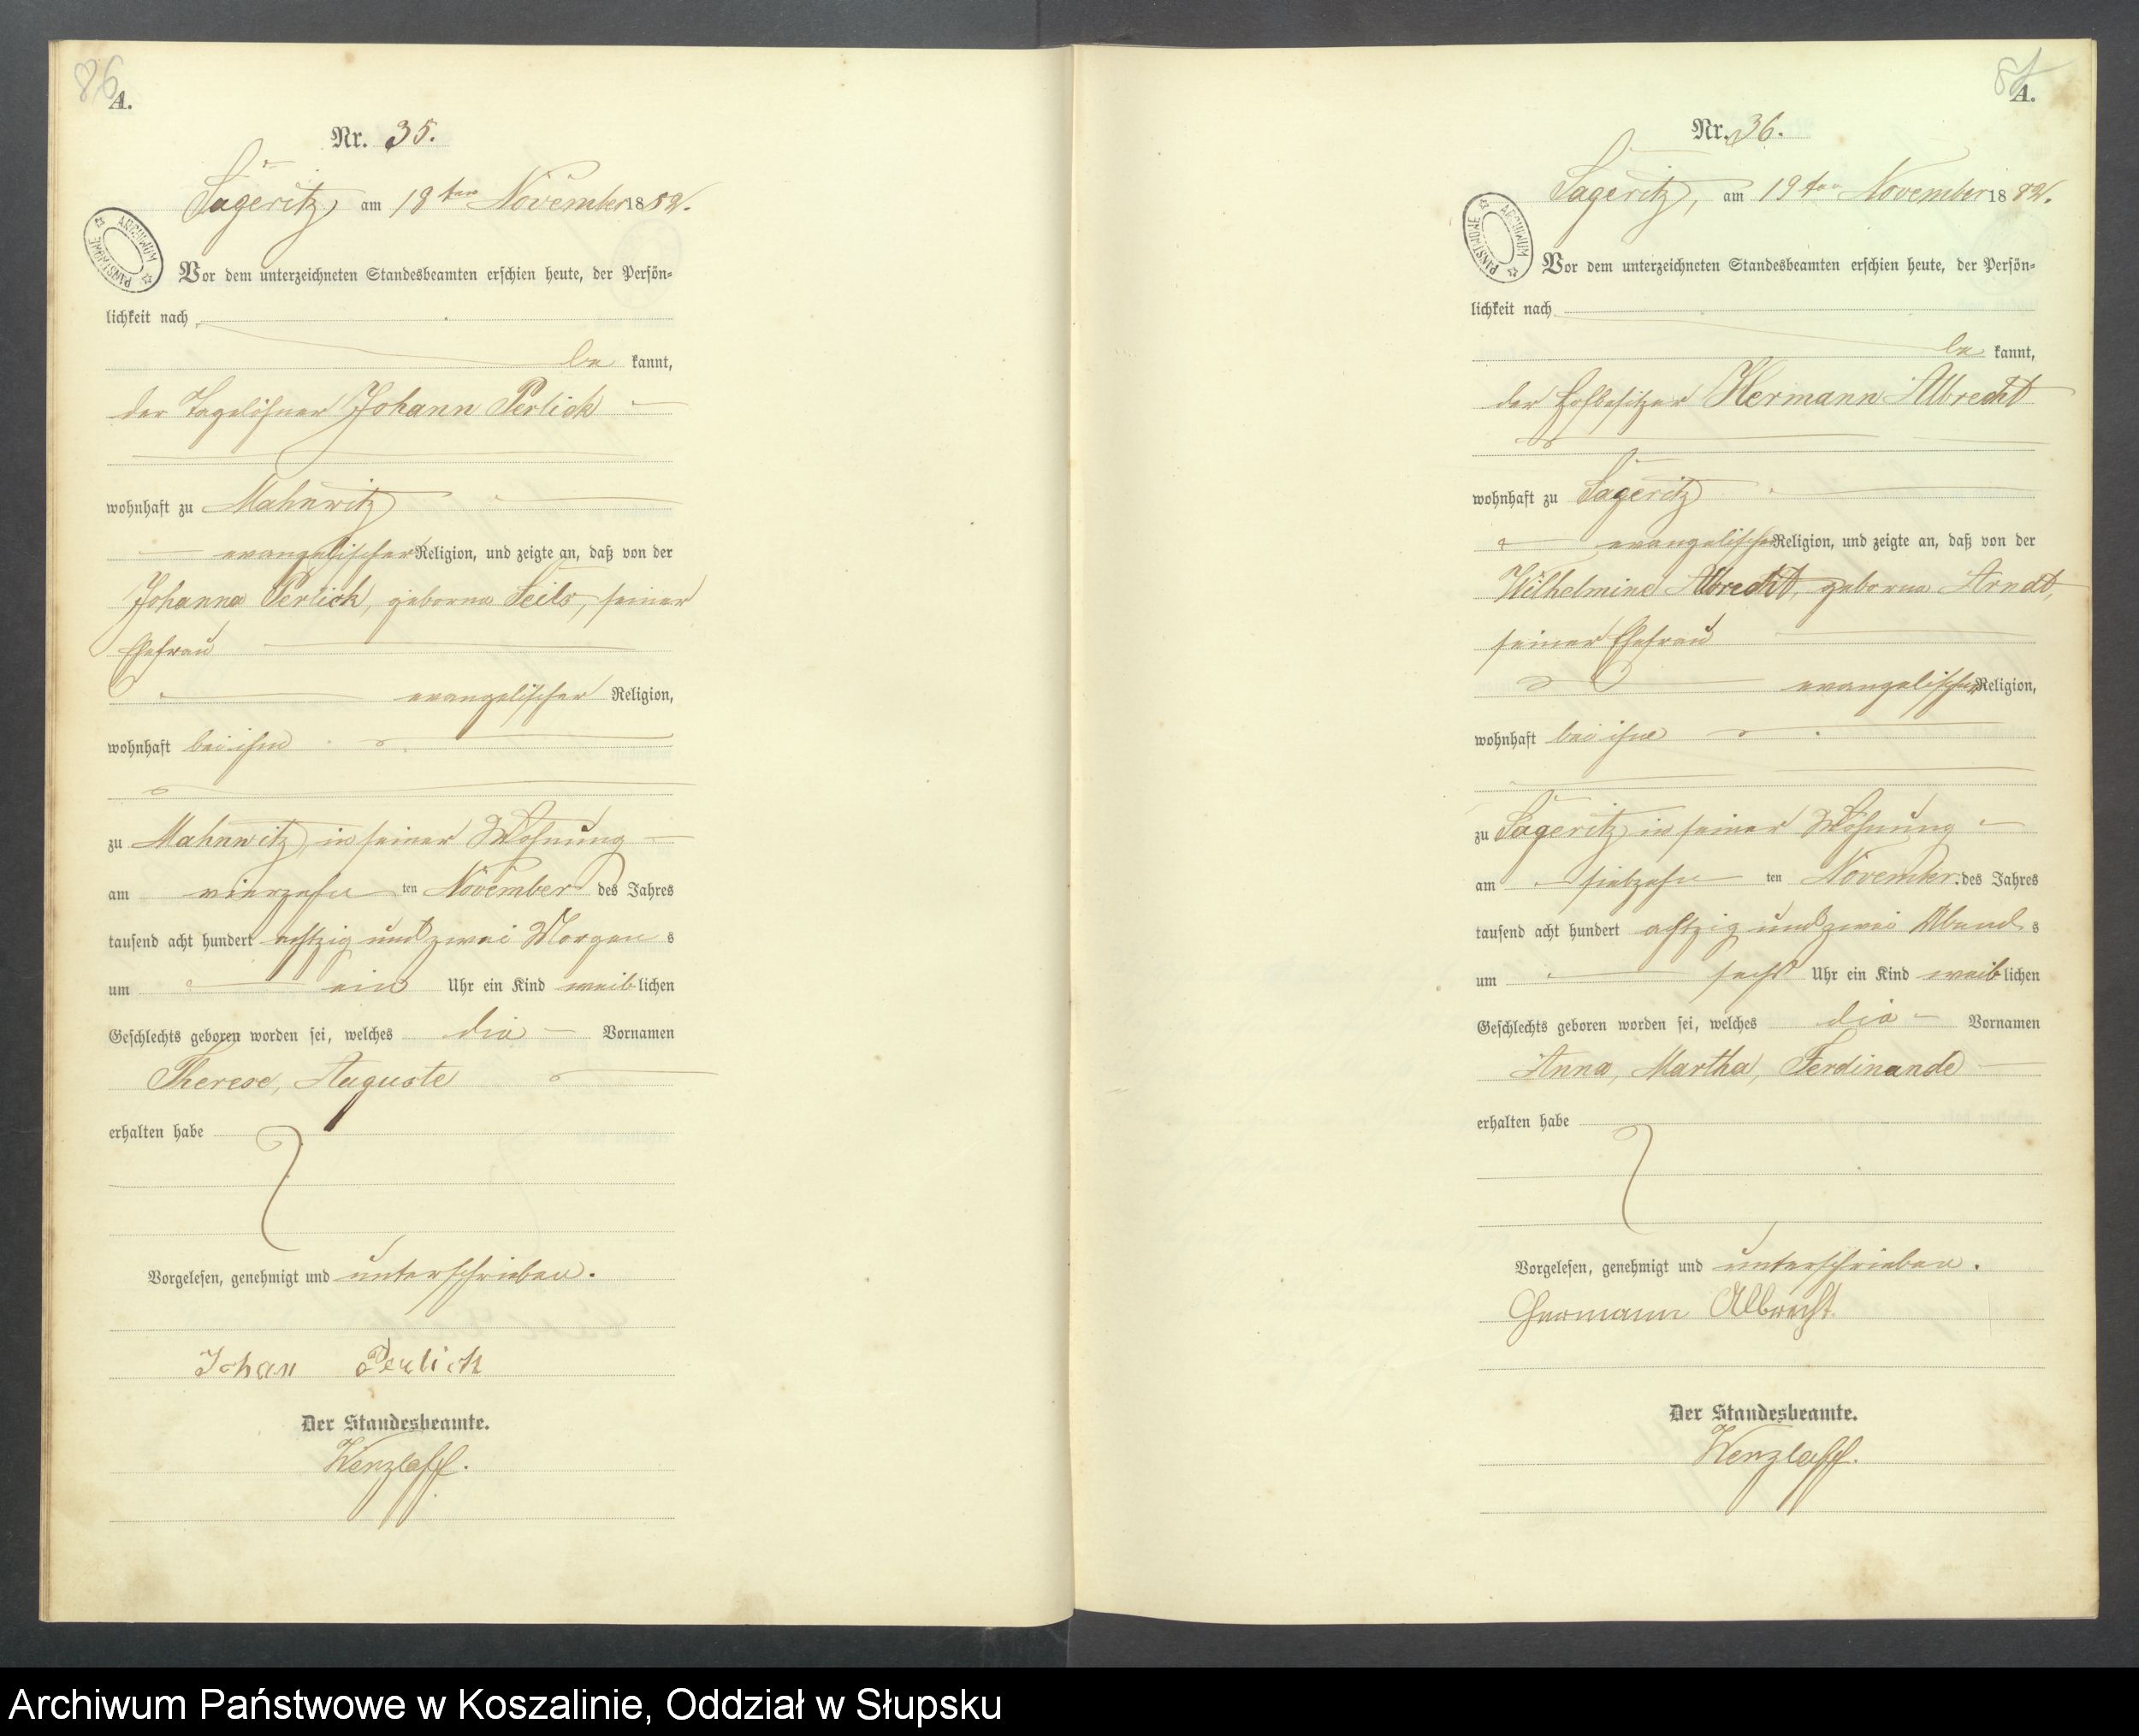 86
A.
Nr. 35.
Sageritz, am 18ten November 1882.
Vor dem unterzeichneten Standesbeamten erschien heute, der Persön-
lichkeit nach
be kannt,
der Tagelöhner Johann Perlick
wohnhaft zu Mahnwitz
evangelischer Religion, und zeigte an, daß von der
Johanna Perlick, geborne Seils, seiner
Ehefrau
evangelischer Religion,
wohnhaft bei ihm
zu Mahnwitz, in seiner Wohnung
am vierzehn ten November des Jahres
tausend acht hundert achtzig und zwei Morgen s
um ein Uhr ein Kind weib lichen
Geschlechts geboren worden sei, welches die Vornamen
Therese, Auguste
erhalten habe
Vorgelesen, genehmigt und unterschrieben.
Johan Perlick
Der Standesbeamte.
Wenzlaff.
A.
Nr. 36.
Sageritz, am 19ten November 1882.
Vor dem unterzeichneten Standesbeamten erschien heute, der Persön-
lichkeit nach
be kannt,
der Hofbesitzer Hermann Albrecht
wohnhaft zu Sageritz
evangelischer Religion, und zeigte an, daß von der
Wilhelmine Albrecht, geborne Arndt,
seiner Ehefrau
evangelischer Religion,
wohnhaft bei ihm
zu Sageritz in seiner Wohnung
am siebzehn ten November des Jahres
tausend acht hundert achtzig und zwei Abend s
um sechs Uhr ein Kind weib lichen
Geschlechts geboren worden sei, welches die Vornamen
Anna, Martha, Ferdinande
erhalten habe
Vorgelesen, genehmigt und unterschrieben.
Hermann Albrecht.
Der Standesbeamte.
Wenzlaff.
ARCHIWUM PAŃSTWOWE
ARCHIWUM PAŃSTWOWE
Archiwum Państwowe w Koszalinie, Oddział w Słupsku